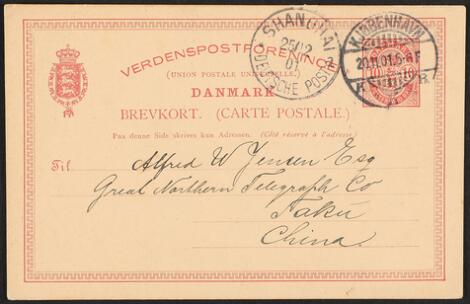 SHANGHAI
25/12
01
DEUTSCHE POST
KJØBENHAVN
20.11.01.5-6 F
K
VERDENSPOSTFORENINGEN
(UNION POSTALE UNIVERSELLE.)
DANMARK
10 10
BREVKORT. (CARTE POSTALE.)
Paa denne Side skrives kun Adressen. (Côté réservé à l'adresse.)
Til
Alfred W Jensen Esq
Great Northern Telegraph Co
Taku
China.